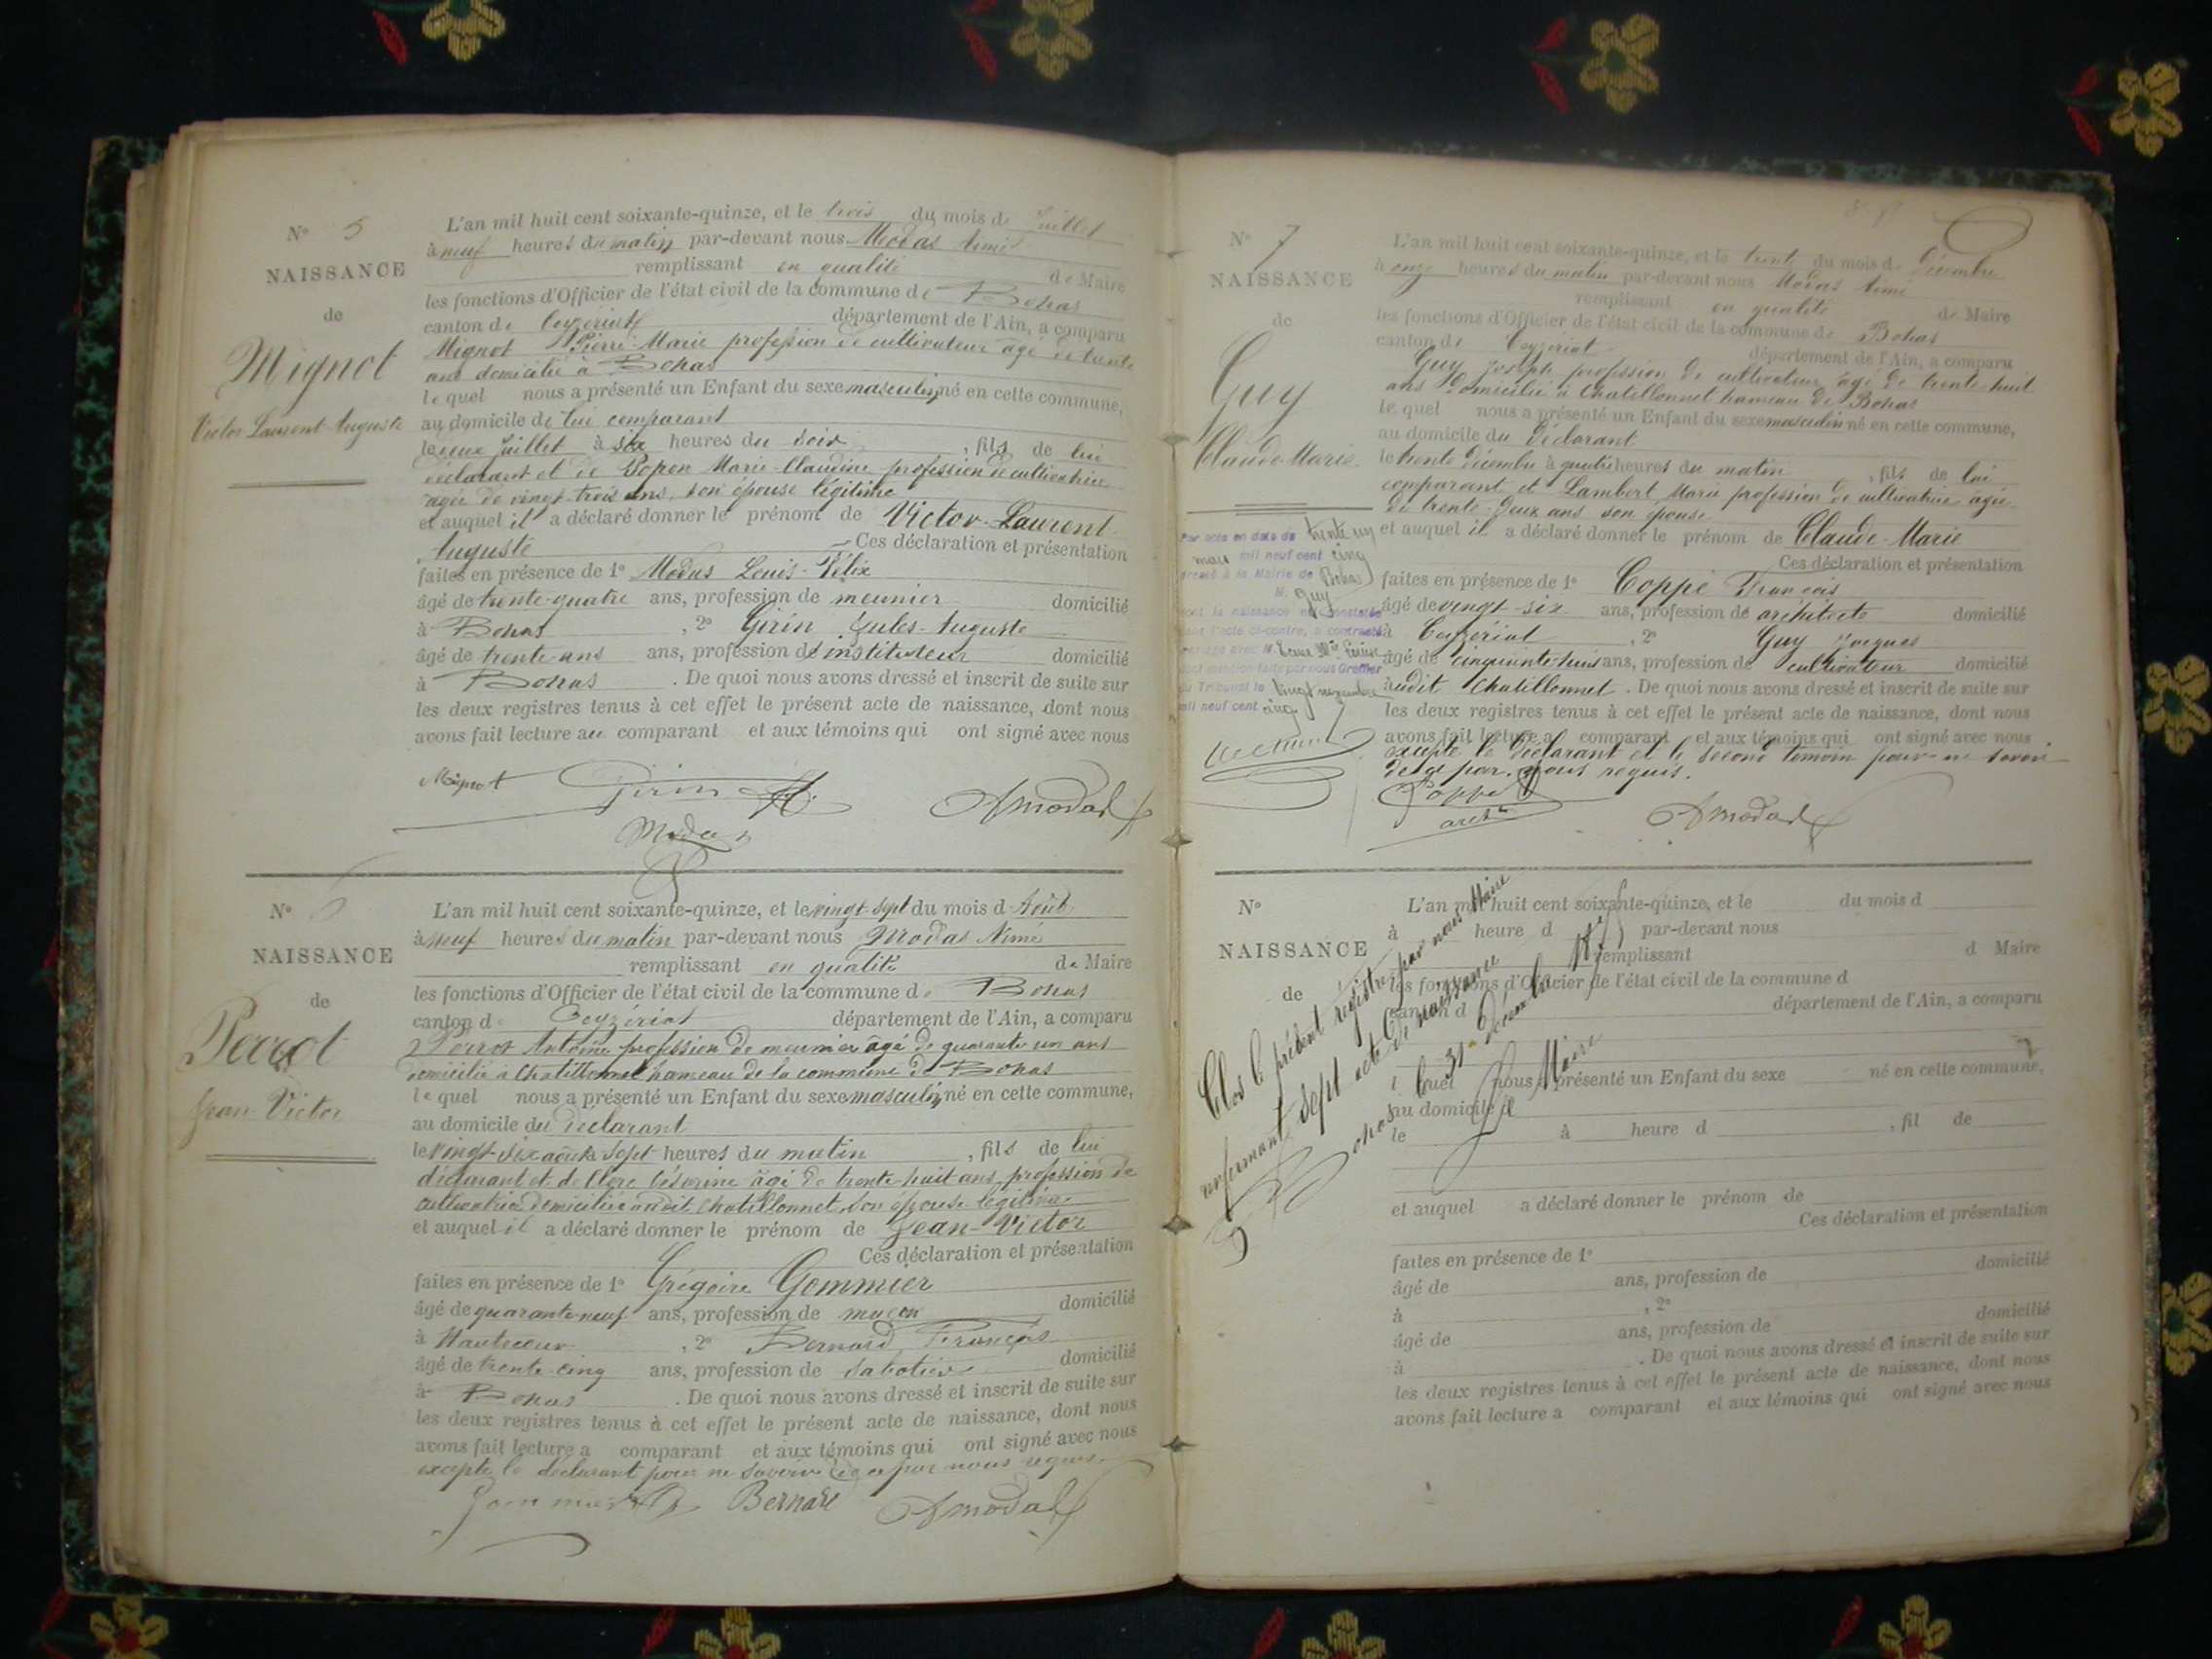 N° 5
NAISSANCE
de
Mignot
Victor Laurent Auguste
L'an mil huit cent soixante-quinze, et le trois du mois de Juillet
à neuf heures du matin par-devant nous Modas Aimé
remplissant en qualité de Maire
les fonctions d'Officier de l'état civil de la commune de Bohas
canton de Ceyzeriat département de l'Ain, a comparu
Mignot Pierre-Marie profession de cultivateur âgé de trente
ans domicilié à Bohas
le quel nous a présenté un Enfant du sexe masculin, né en cette commune,
au domicile de lui comparant
le deux Juillet à six heures du soir, fils de lui
déclarant et de Popon Marie-Claudine profession de cultivatrice
agée de vingt-trois ans, son épouse légitime
et auquel il a déclaré donner le prénom de Victor-Laurent
Auguste Ces déclaration et présentation
faites en présence de 1° Modas Louis-Félix
âgé de trente-quatre ans, profession de meunier domicilié
à Bohas, 2° Girin Jules-Auguste
âgé de trente-ans ans, profession de instituteur domicilié
à Bohas. De quoi nous avons dressé et inscrit de suite sur
les deux registres tenus à cet effet le présent acte de naissance, dont nous
avons fait lecture au comparant et aux témoins qui ont signé avec nous
Mignot Girin AModas
Modas
N° 6
NAISSANCE
de
Perrot
Jean-Victor
L'an mil huit cent soixante-quinze, et le vingt-sept du mois d'Août
à neuf heures du matin par-devant nous Modas Aimé
remplissant en qualité de Maire
les fonctions d'Officier de l'état civil de la commune de Bohas
canton de Ceyzériat département de l'Ain, a comparu
Perrot Antoine profession de meunier âgé de quarante un ans
domicilié à Chatillonnet hameau de la commune de Bohas
le quel nous a présenté un Enfant du sexe masculin, né en cette commune,
au domicile du déclarant
le vingt-six août à sept heures du matin, fils de lui
déclarant et de Clerc Césarine âgé de trente-huit ans, profession de
cultivatrice domiciliée audit Chatillonnet, son épouse légitime
et auquel il a déclaré donner le prénom de Jean-Victor
Ces déclaration et présentation
faites en présence de 1° Grégoire Gommier
âgé de quarante-neuf ans, profession de maçon domicilié
à Hautecour, 2° Bernard François
âgé de trente-cinq ans, profession de sabotier domicilié
à Bohas. De quoi nous avons dressé et inscrit de suite sur
les deux registres tenus à cet effet le présent acte de naissance, dont nous
avons fait lecture a comparant et aux témoins qui ont signé avec nous
excepté le déclarant pour ne savoir de ce par nous requis.
Gommier Bernard AModas
N° 7
NAISSANCE
de
Guy
Claude-Marie
L'an mil huit cent soixante-quinze, et le trente du mois de Décembre
à onze heures du matin par-devant nous Modas Aimé
remplissant en qualité de Maire
les fonctions d'Officier de l'état civil de la commune de Bohas
canton de Ceyzeriat département de l'Ain, a comparu
Guy Joseph profession de cultivateur âgé de trente-huit
ans domicilié à Chatillonnet hameau de Bohas
le quel nous a présenté un Enfant du sexe masculin né en cette commune,
au domicile du déclarant
le trente décembre à quatre heures du matin, fils de lui
comparant et Lambert Marie profession de cultivatrice agée
de trente-deux ans son épouse
et auquel il a déclaré donner le prénom de Claude-Marie
Ces déclaration et présentation
faites en présence de 1° Coppé François
âgé de vingt-six ans, profession de architecte domicilié
à Ceyzériat, 2° Guy Jacques
âgé de cinquante-huit ans, profession de cultivateur domicilié
audit Chatillonnet. De quoi nous avons dressé et inscrit de suite sur
les deux registres tenus à cet effet le présent acte de naissance, dont nous
avons fait lecture au comparant et aux témoins qui ont signé avec nous
excepté le déclarant et le second témoin pour ne savoir
de ce par nous requis.
Coppé AModas
arch
Par acte en date du trente un
mai mil neuf cent cinq
dressé à la Mairie de Bohas
M. Guy
dont la naissance est constatée
dans l'acte ci-contre, a contracté
mariage avec M
dont mention faite par nous Greffier
du Tribunal le vingt novembre
mil neuf cent cinq
N°
NAISSANCE
de
L'an mil huit cent soixante-quinze, et le du mois d
à heure d par-devant nous
remplissant d Maire
les fonctions d'Officier de l'état civil de la commune d
canton d département de l'Ain, a comparu
l quel nous a présenté un Enfant du sexe né en cette commune,
au domicile d
le à heure d, fil de
et auquel a déclaré donner le prénom de
Ces déclaration et présentation
faites en présence de 1°
âgé de ans, profession de domicilié
à, 2°
âgé de ans, profession de domicilié
à. De quoi nous avons dressé et inscrit de suite sur
les deux registres tenus à cet effet le présent acte de naissance, dont nous
avons fait lecture a comparant et aux témoins qui ont signé avec nous
Clos le présent registre par nous Maire
renfermant sept actes de naissance
Bohas le 31 décembre 1875
Le Maire